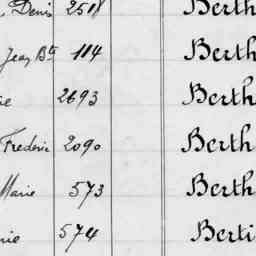 Denis 2518 Berth
Jean Bte 114 Berth
ie 2693 Berth
Frederic 2090 Berth
Marie 573 Berth
rie 574 Berti